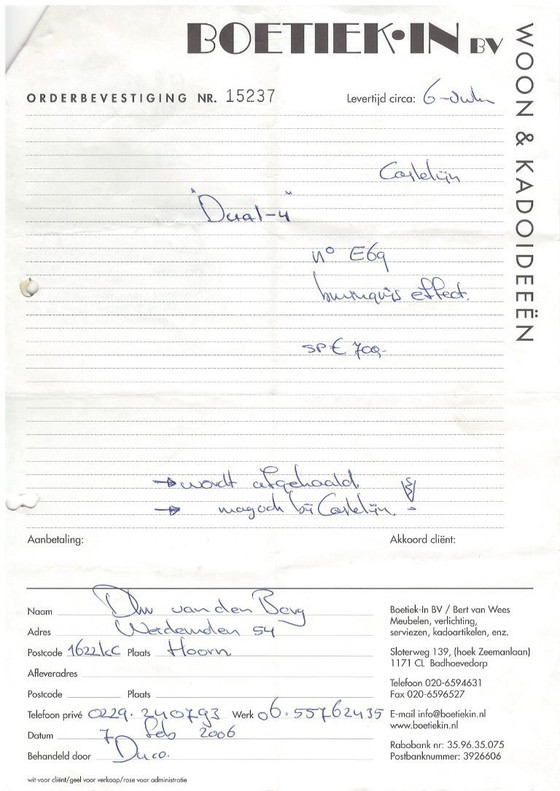 BOETIEK•IN BV
WOON & KADOIDEEËN
ORDERBEVESTIGING NR. 15237
Levertijd circa: 6-
Castelijn
"Dual-4"
nº E69
effect.
SP € 700,-
→ wordt afgehaald
→ mag ook bij Castelijn.
Aanbetaling:
Akkoord cliënt:
Naam Dhr van den Berg
Adres 54
Postcode 1622KC Plaats Hoorn
Afleveradres
Postcode Plaats
Telefoon privé 0229-240793 Werk 06-55762435
Datum 7 feb 2006
Behandeld door Duco.
Boetiek-In BV / Bert van Wees
Meubelen, verlichting,
serviezen, kadoartikelen, enz.
Sloterweg 139, (hoek Zeemanlaan)
1171 CL Badhoevedorp
Telefoon 020-6594631
Fax 020-6596527
E-mail info@boetiekin.nl
www.boetiekin.nl
Rabobank nr: 35.96.35.075
Postbanknummer: 3926606
wit voor cliënt/geel voor verkoop/rose voor administratie